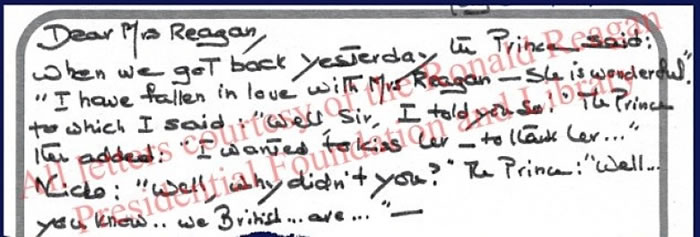 Dear Mrs Reagan,
When we got back yesterday the Prince said:
"I have fallen in love with Mrs Reagan — She is wonderful"
to which I said: "Well Sir, I told you so." The Prince
then added: "I wanted to kiss her — to thank her..."
Nicho: "Well, why didn't you?" The Prince: "Well...
you know.. we British... are..." —
All letters courtesy of the Ronald Reagan
Presidential Foundation and Library